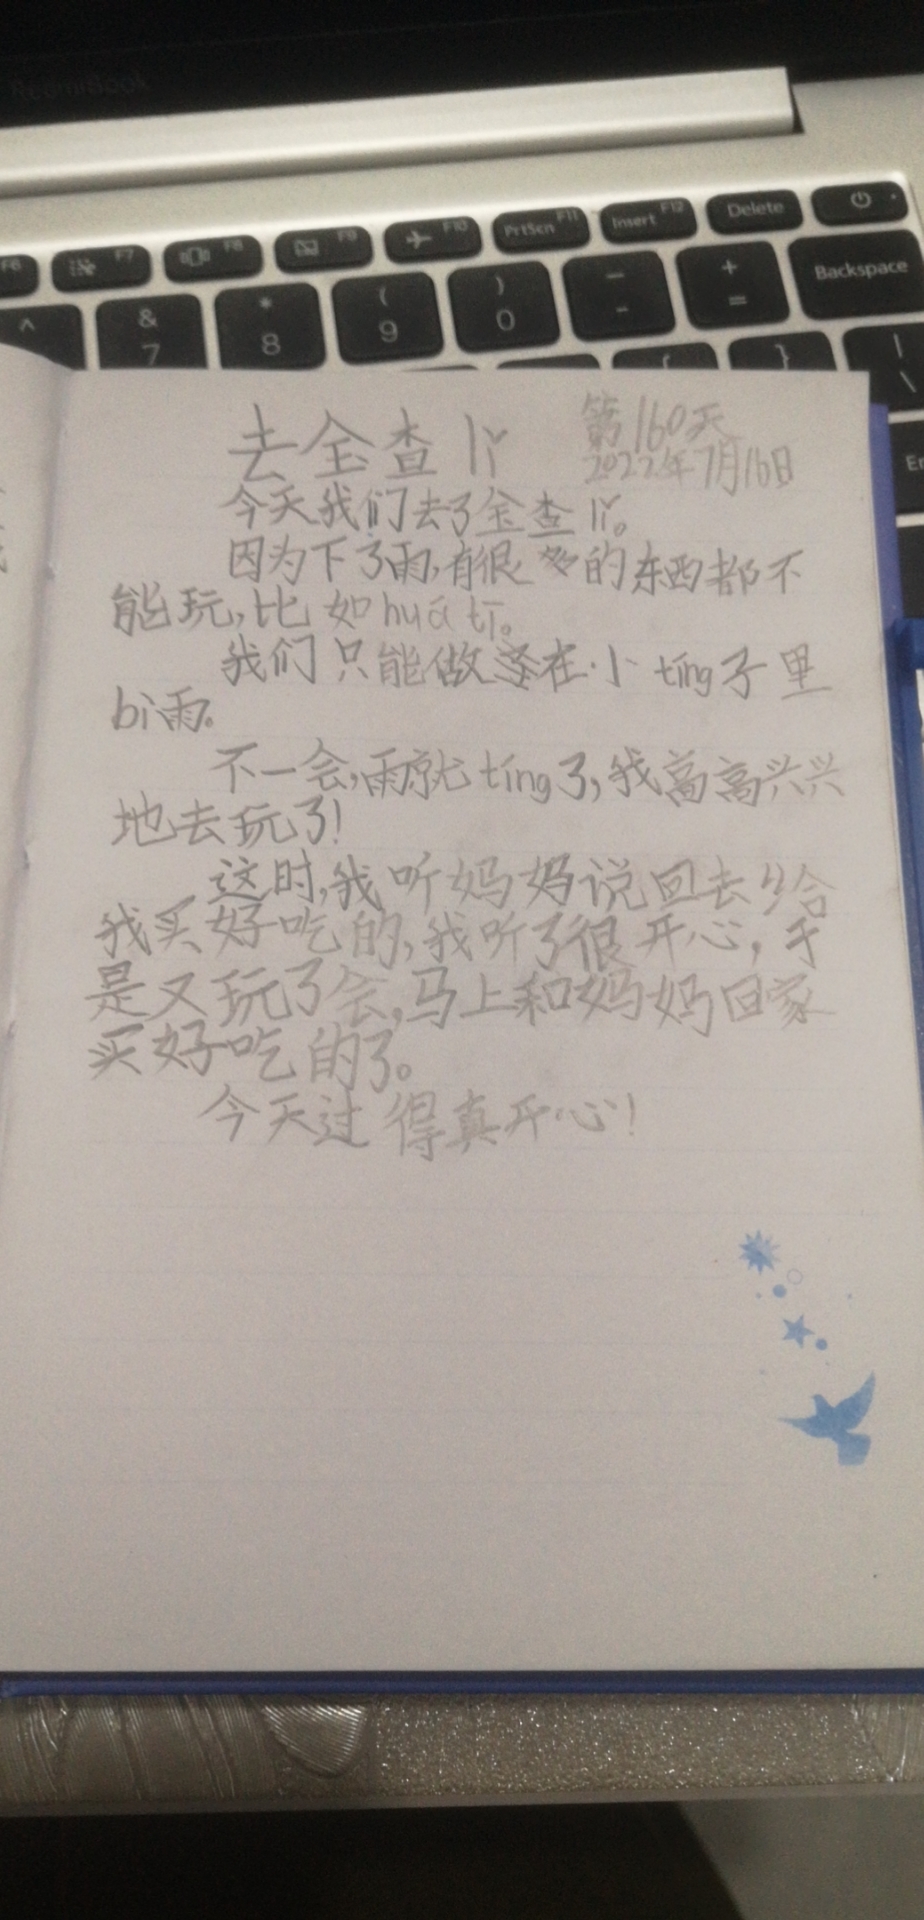 RedmiBook
F6 F7 F8 F9 F10 PrtScn F11 Insert F12 Delete
^ & 7 * 8 ( 9 ) 0 — - + = Backspace
{ } | \
En
去金查lǐ 第160天
2022年7月16日
今天我们去了金查lǐ。
因为下了雨,有很多的东西都不
能玩,比如huá tī。
我们只能做 在小tíng子里
bì雨。
不一会,雨就tíng了,我高高兴兴
地去玩了!
这时,我听妈妈说回去给
我买好吃的,我听了很开心,于
是又玩了会,马上和妈妈回家
买好吃的了。
今天过得真开心!